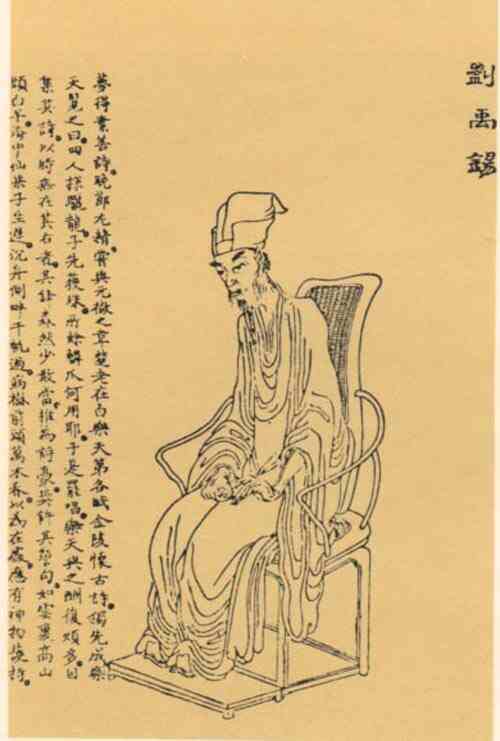 劉禹錫
夢得素善詩。晚節尤精。嘗與元微之韋楚老在白樂天第各賦金陵懷古詩。獨先成。樂
天覽之曰。四人探驪龍。子先獲珠。所餘鱗爪何用耶。于是罷唱。樂天與之酬復頗多。自
集其詩。以時無在其右者。其鋒森然少敢當。推為詩豪。其警句。如雪裏高山
頭白早。海中仙果子生遲。沉舟側畔千帆過。病樹前頭萬木春。以為在處。應有神物護持。